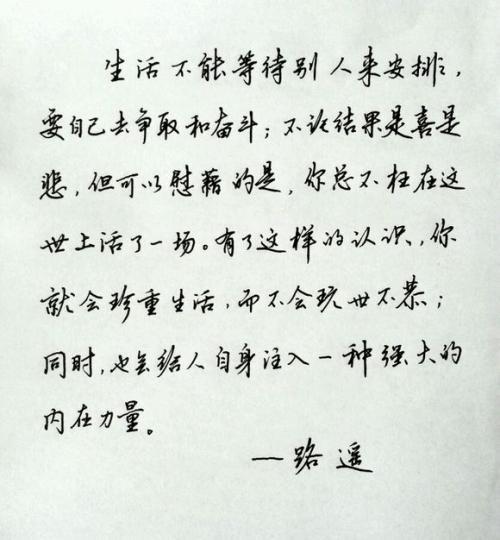 生活不能等待别人来安排，
要自己去争取和奋斗；不论结果是喜是
悲，但可以慰藉的是，你总不枉在这
世上活了一场。有了这样的认识，你
就会珍重生活，而不会玩世不恭；
同时，也会给人自身注入一种强大的
内在力量。
—路遥